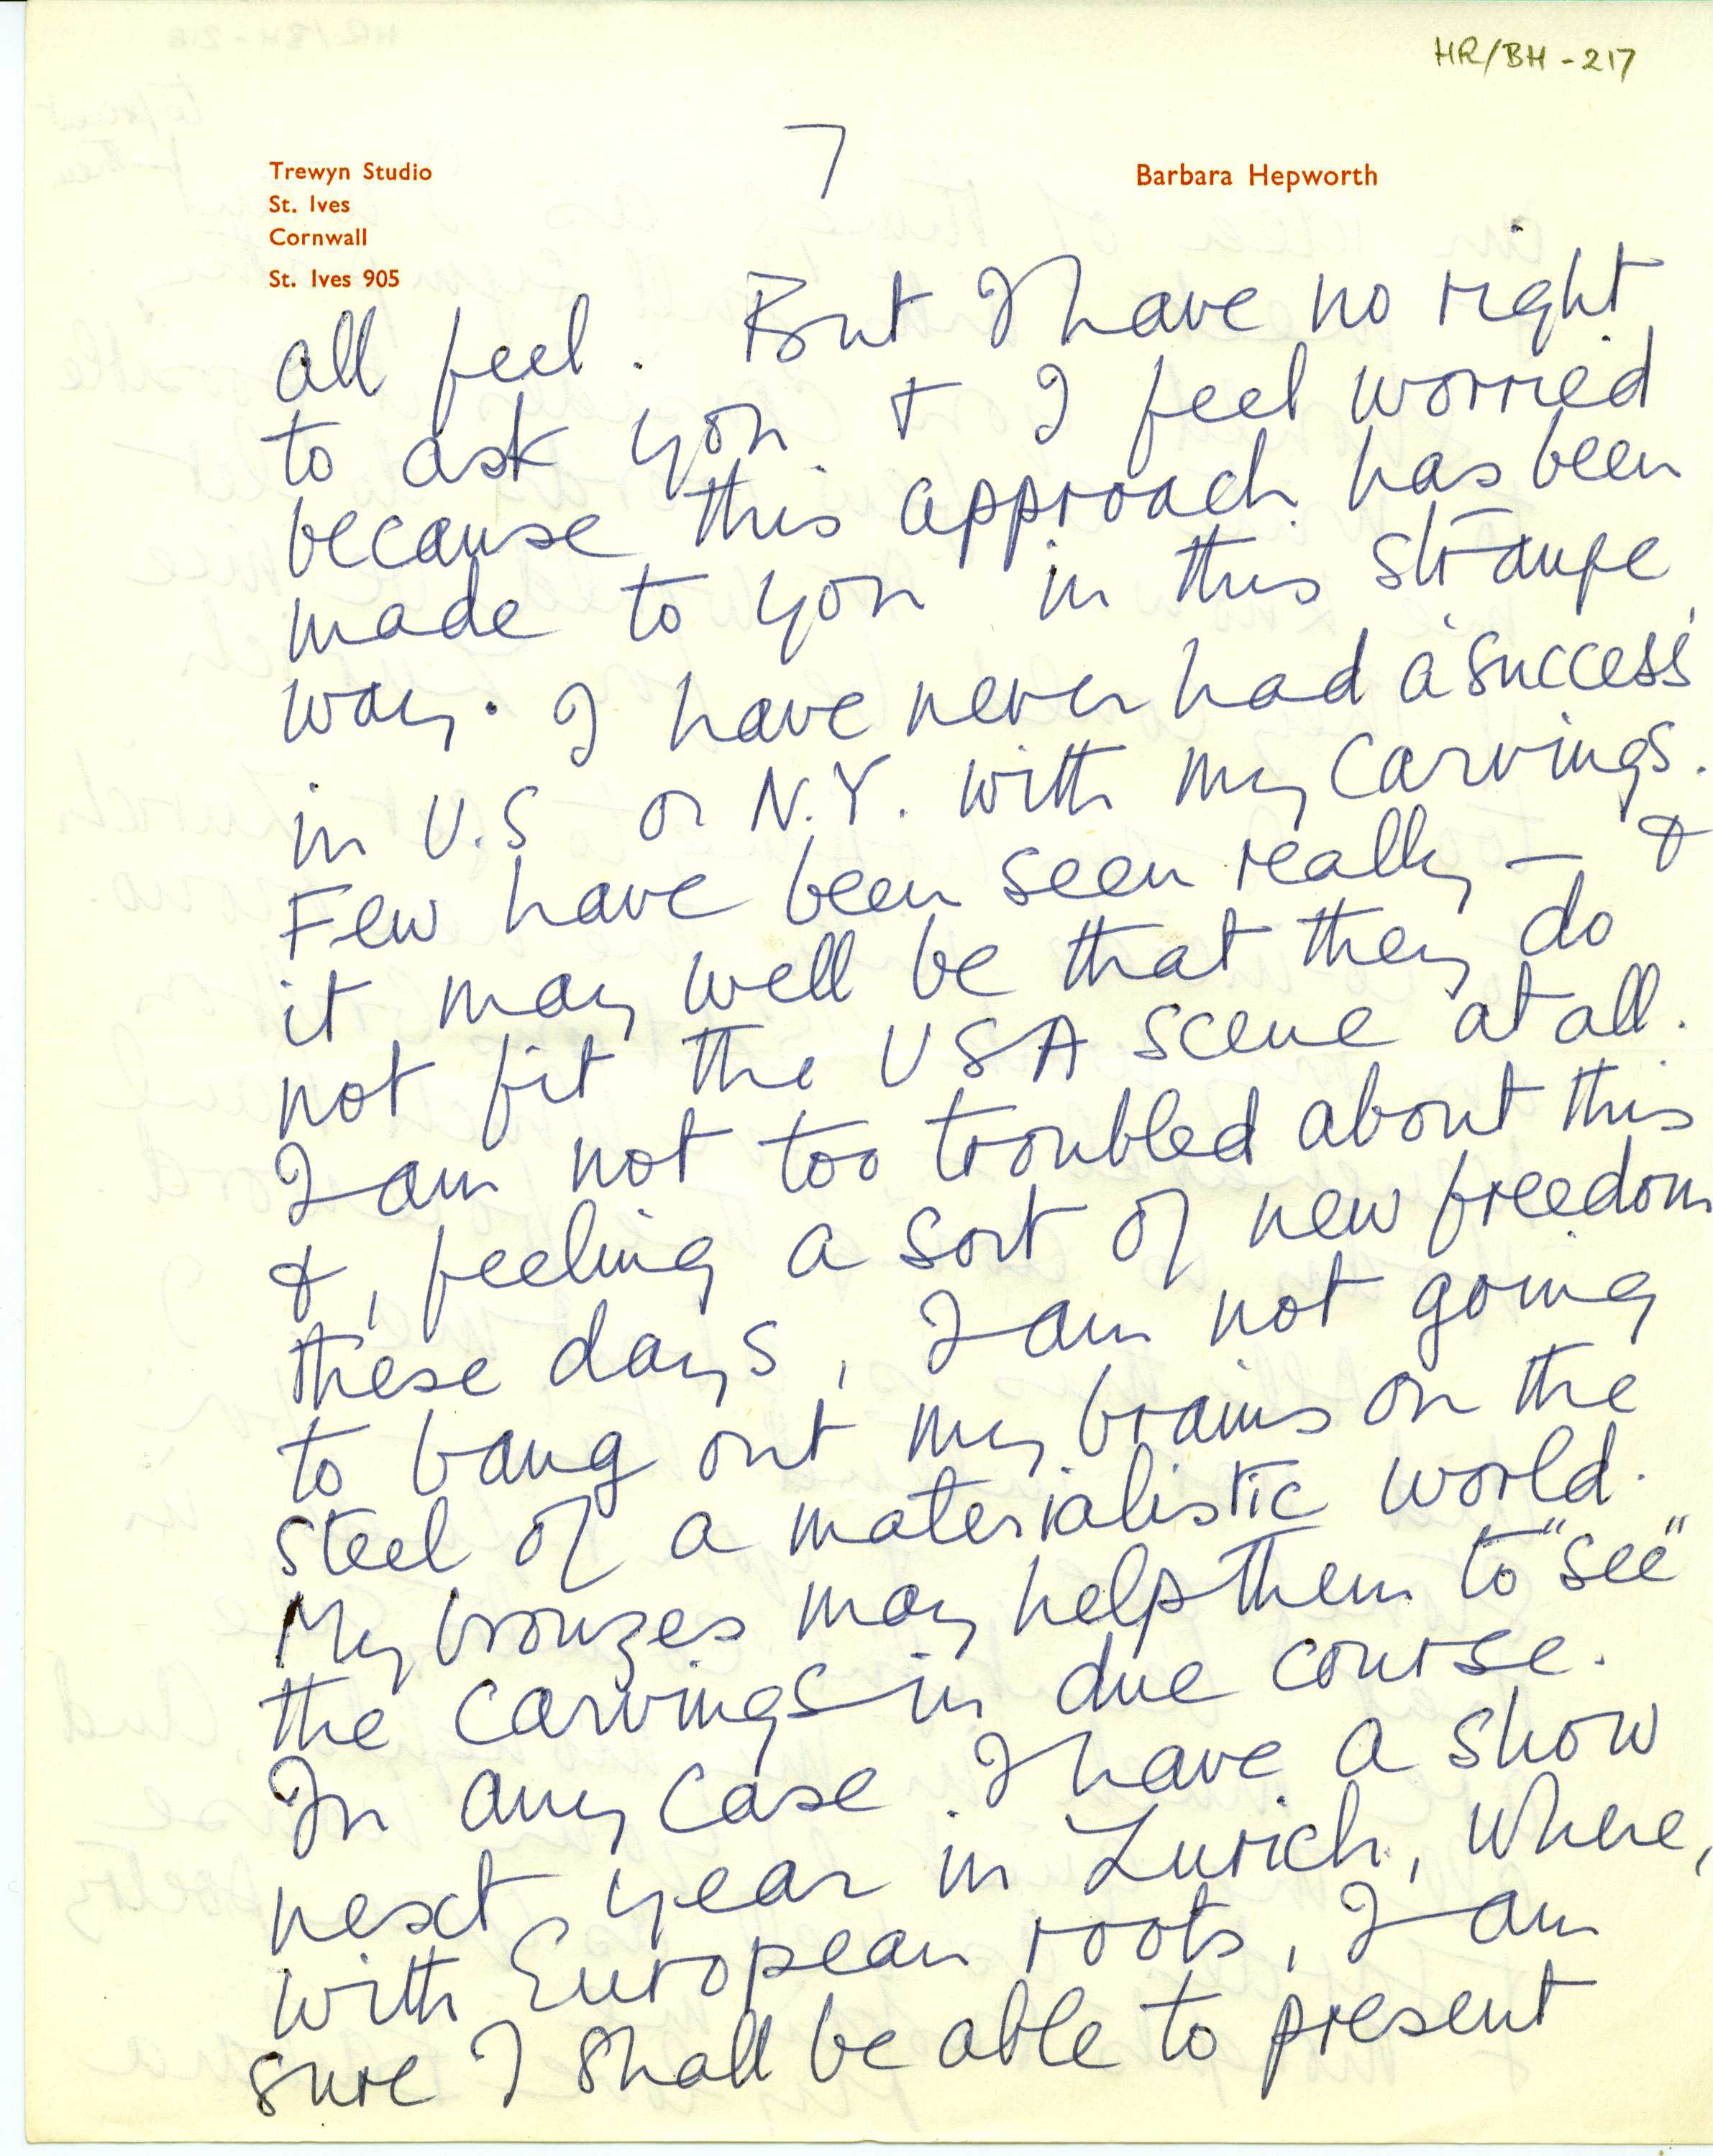 HR/BH - 217
7
Trewyn Studio
St. Ives
Cornwall
St. Ives 905
Barbara Hepworth
all feel. But I have no right
to ask you + I feel worried
because this approach has been
made to you in this strange
way. I have never had a 'success'
in U.S or N.Y. with my carvings.
Few have been seen really – &
it may well be that they do
not fit the USA scene at all.
I am not too troubled about this
&, feeling a sort of new freedom
these days, I am not going
to bang out my brains on the
steel of a materialistic world.
My bronzes may help them to "see"
the carvings in due course.
In any case I have a show
next year in Zurich, where,
with European roots, I am
sure I shall be able to present